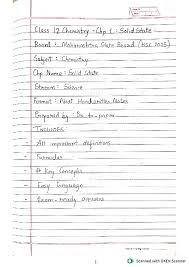 Class 12 Chemistry - Chp 1 : Solid State
Board : Maharashtra State Board (HSC 2025)
Subject : Chemistry
Chp Name : Solid State
Stream : Science
Format : Neat Handwritten Notes
Prepared by :
All important definitions
- Formulas
# Key Concepts
- Easy Language
- Exam-ready
Scanned with OKEN Scanner